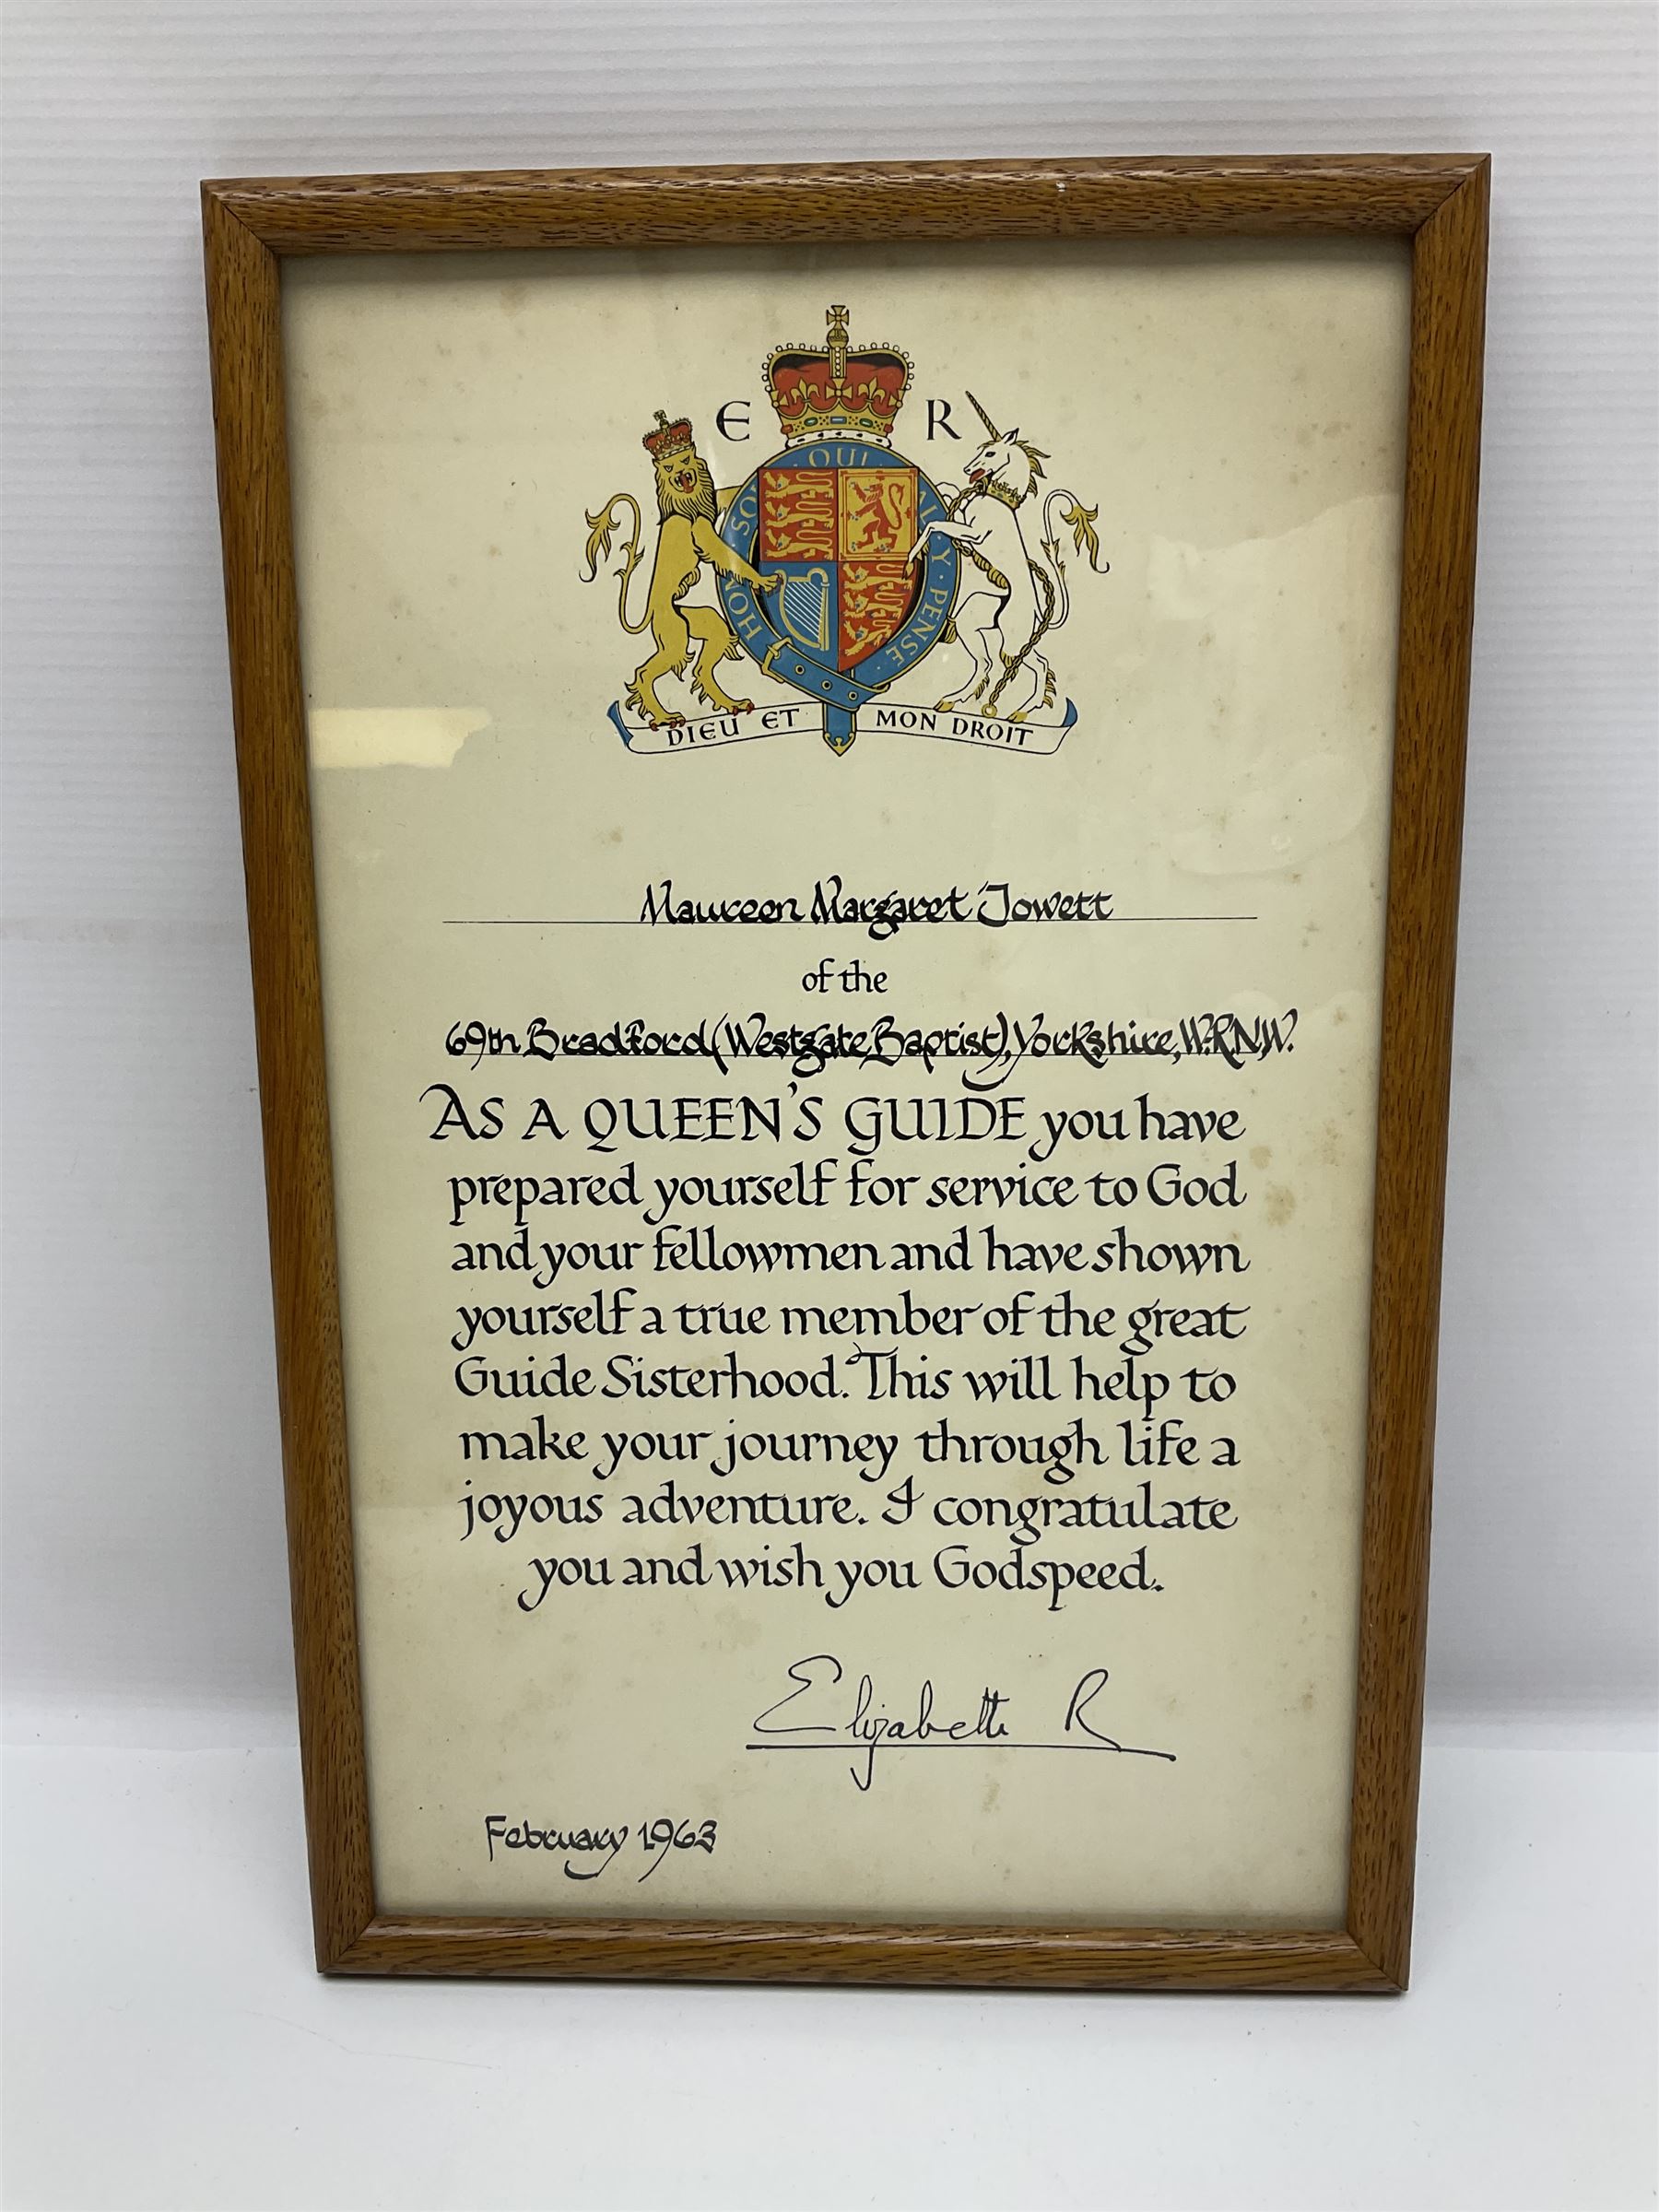 E R
HONI · SOI · QUI · MAL · Y · PENSE ·
DIEU ET MON DROIT
Maureen Margaret Jowett
of the
69th Bradford (Westgate Baptist), Yorkshire, W.R.N.W.
AS A QUEEN'S GUIDE you have
prepared yourself for service to God
and your fellowmen and have shown
yourself a true member of the great
Guide Sisterhood. This will help to
make your journey through life a
joyous adventure. I congratulate
you and wish you Godspeed.
Elizabeth R
February 1963